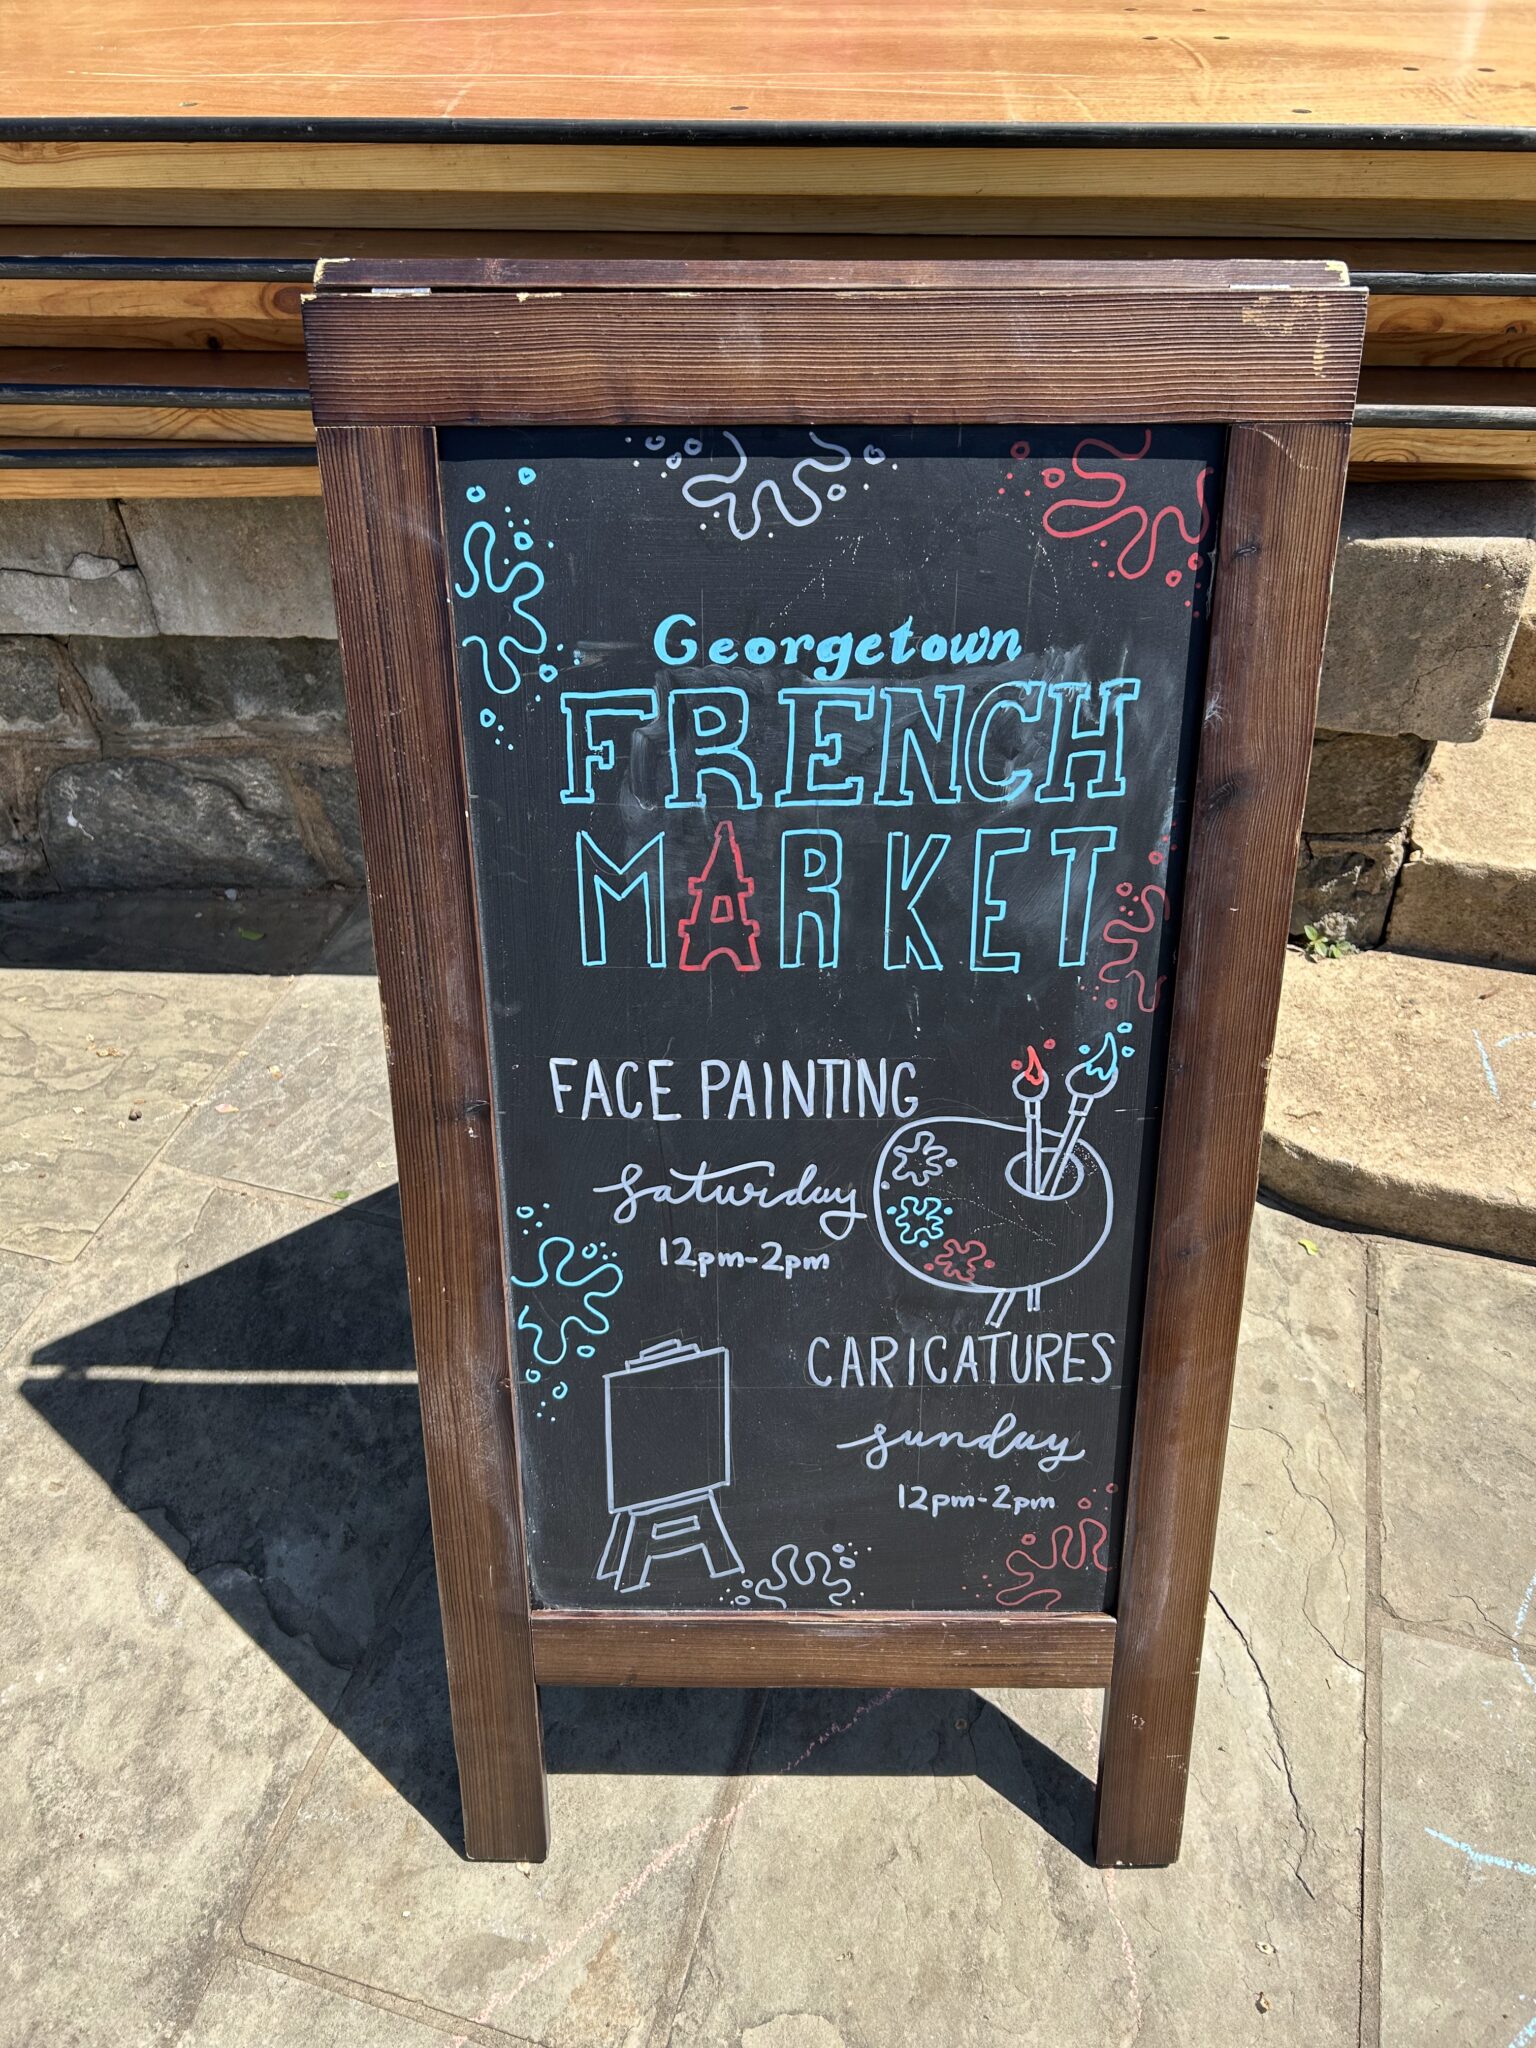 Georgetown
FRENCH
MARKET
FACE PAINTING
saturday
12pm-2pm
CARICATURES
sunday
12pm-2pm